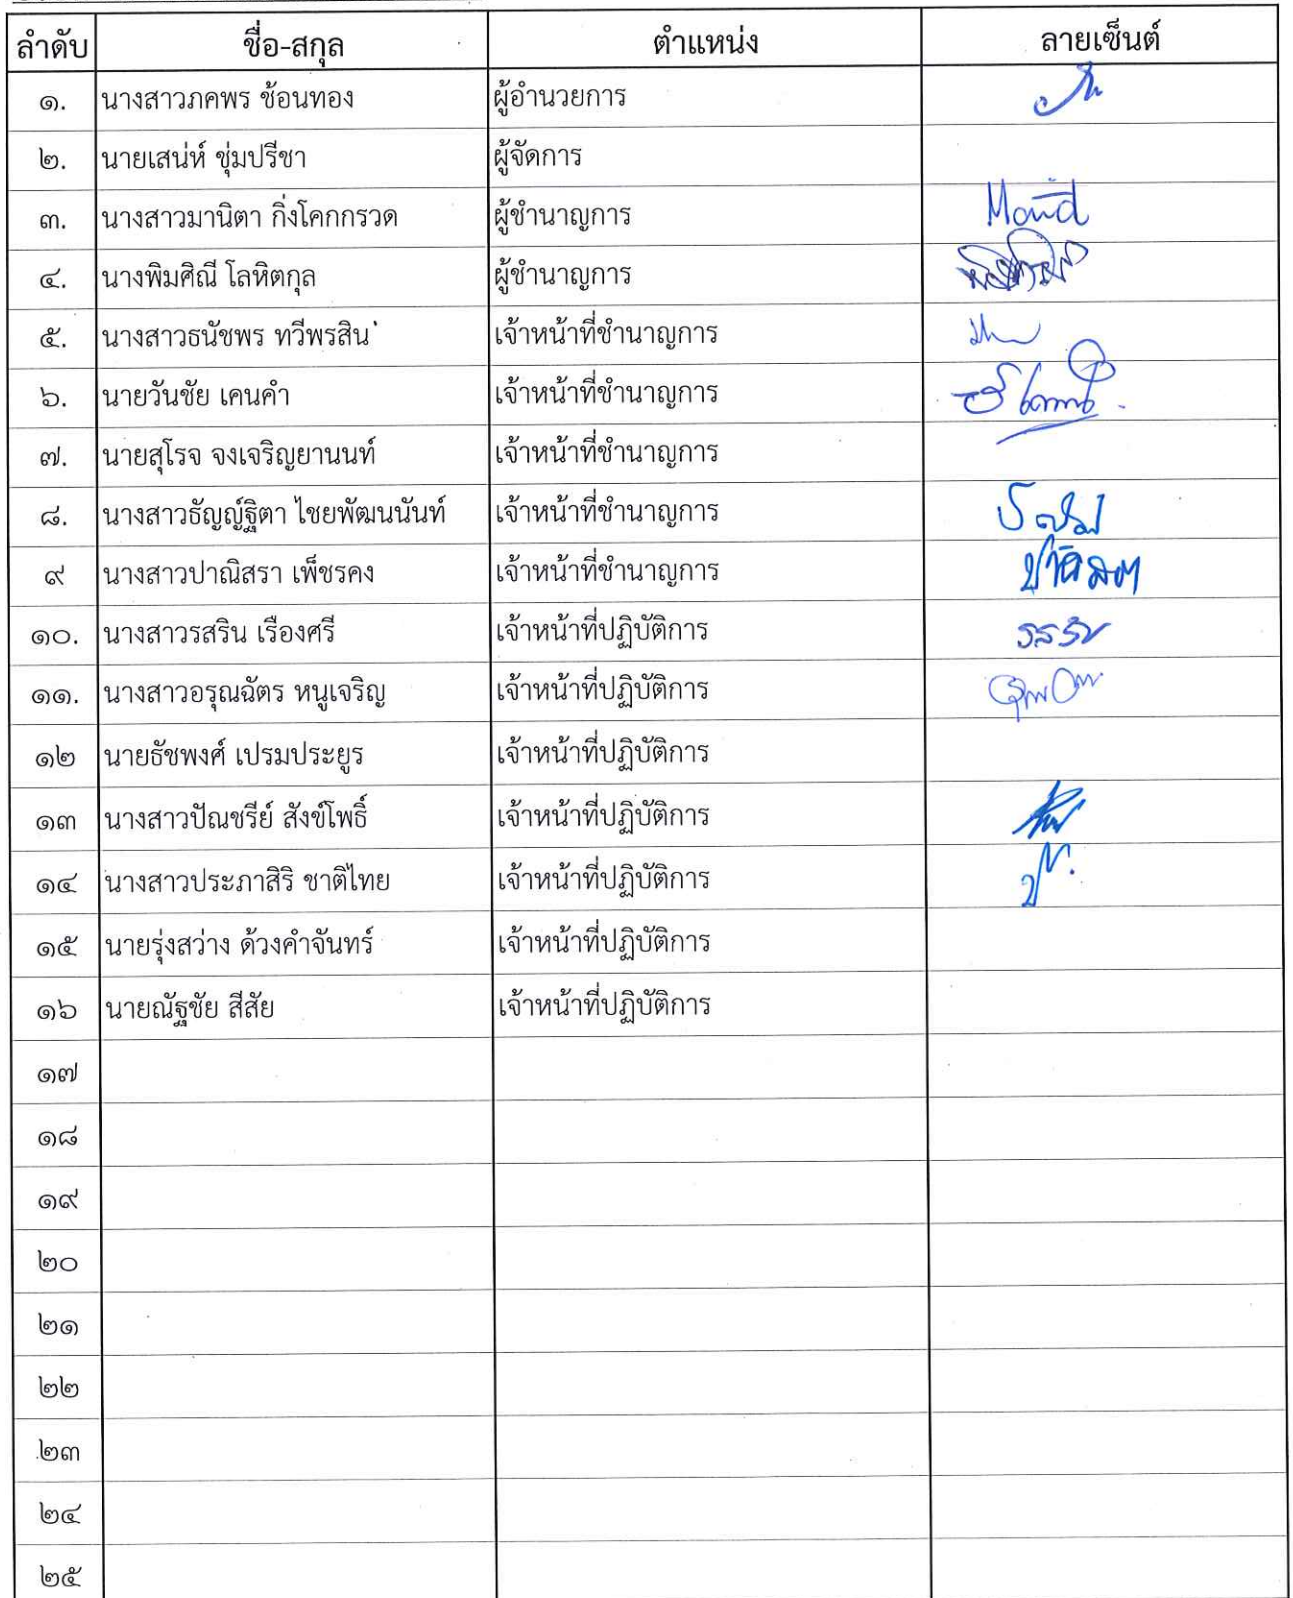 ลำดับ ชื่อ-สกุล ตำแหน่ง ลายเซ็นต์
๑. นางสาวภคพร ช้อนทอง ผู้อำนวยการ
๒. นายเสน่ห์ ชุ่มปรีชา ผู้จัดการ
๓. นางสาวมานิตา กิ่งโคกกรวด ผู้ชำนาญการ
๔. นางพิมศิณี โลหิตกุล ผู้ชำนาญการ
๕. นางสาวธนัชพร ทวีพรสิน เจ้าหน้าที่ชำนาญการ
๖. นายวันชัย เคนคำ เจ้าหน้าที่ชำนาญการ
๗. นายสุโรจ จงเจริญยานนท์ เจ้าหน้าที่ชำนาญการ
๘. นางสาวธัญญ์ฐิตา ไชยพัฒนนันท์ เจ้าหน้าที่ชำนาญการ
๙ นางสาวปาณิสรา เพ็ชรคง เจ้าหน้าที่ชำนาญการ
๑๐. นางสาวรสริน เรืองศรี เจ้าหน้าที่ปฏิบัติการ รสริน
๑๑. นางสาวอรุณฉัตร หนูเจริญ เจ้าหน้าที่ปฏิบัติการ
๑๒ นายธัชพงศ์ เปรมประยูร เจ้าหน้าที่ปฏิบัติการ
๑๓ นางสาวปัณชรีย์ สังข์โพธิ์ เจ้าหน้าที่ปฏิบัติการ
๑๔ นางสาวประภาสิริ ชาติไทย เจ้าหน้าที่ปฏิบัติการ
๑๕ นายรุ่งสว่าง ด้วงคำจันทร์ เจ้าหน้าที่ปฏิบัติการ
๑๖ นายณัฐชัย สีสัย เจ้าหน้าที่ปฏิบัติการ
๑๗
๑๘
๑๙
๒๐
๒๑
๒๒
๒๓
๒๔
๒๕